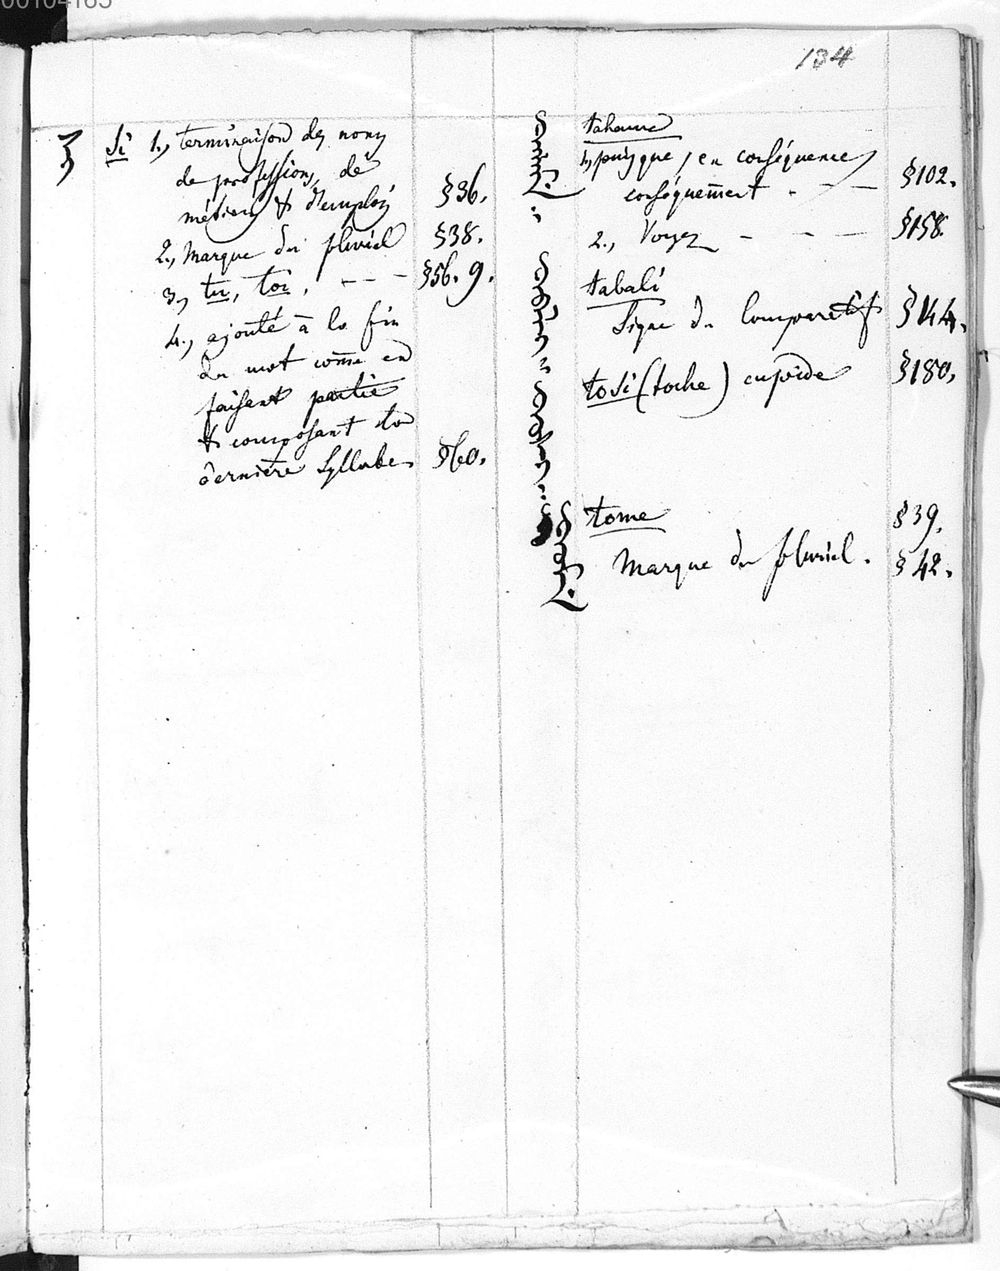 00104165
134
Si 1., terminaison des noms
de professions, de
métiers & d'emplois §36.
2., Marque du pluriel §38.
3., tu, tou, - - - §56. 9.
4., ajouté à la fin
du mot comme en
faisant partie
& composant sa
dernière Syllabe. §60.
1, puisque, en conséquence,
conséquemment - - - §102.
2., Voyez - - - §158
tabali
Signe du Comparatif §144.
tosi (toche) cupide §180.
tome §39.
Marque du pluriel. §42.